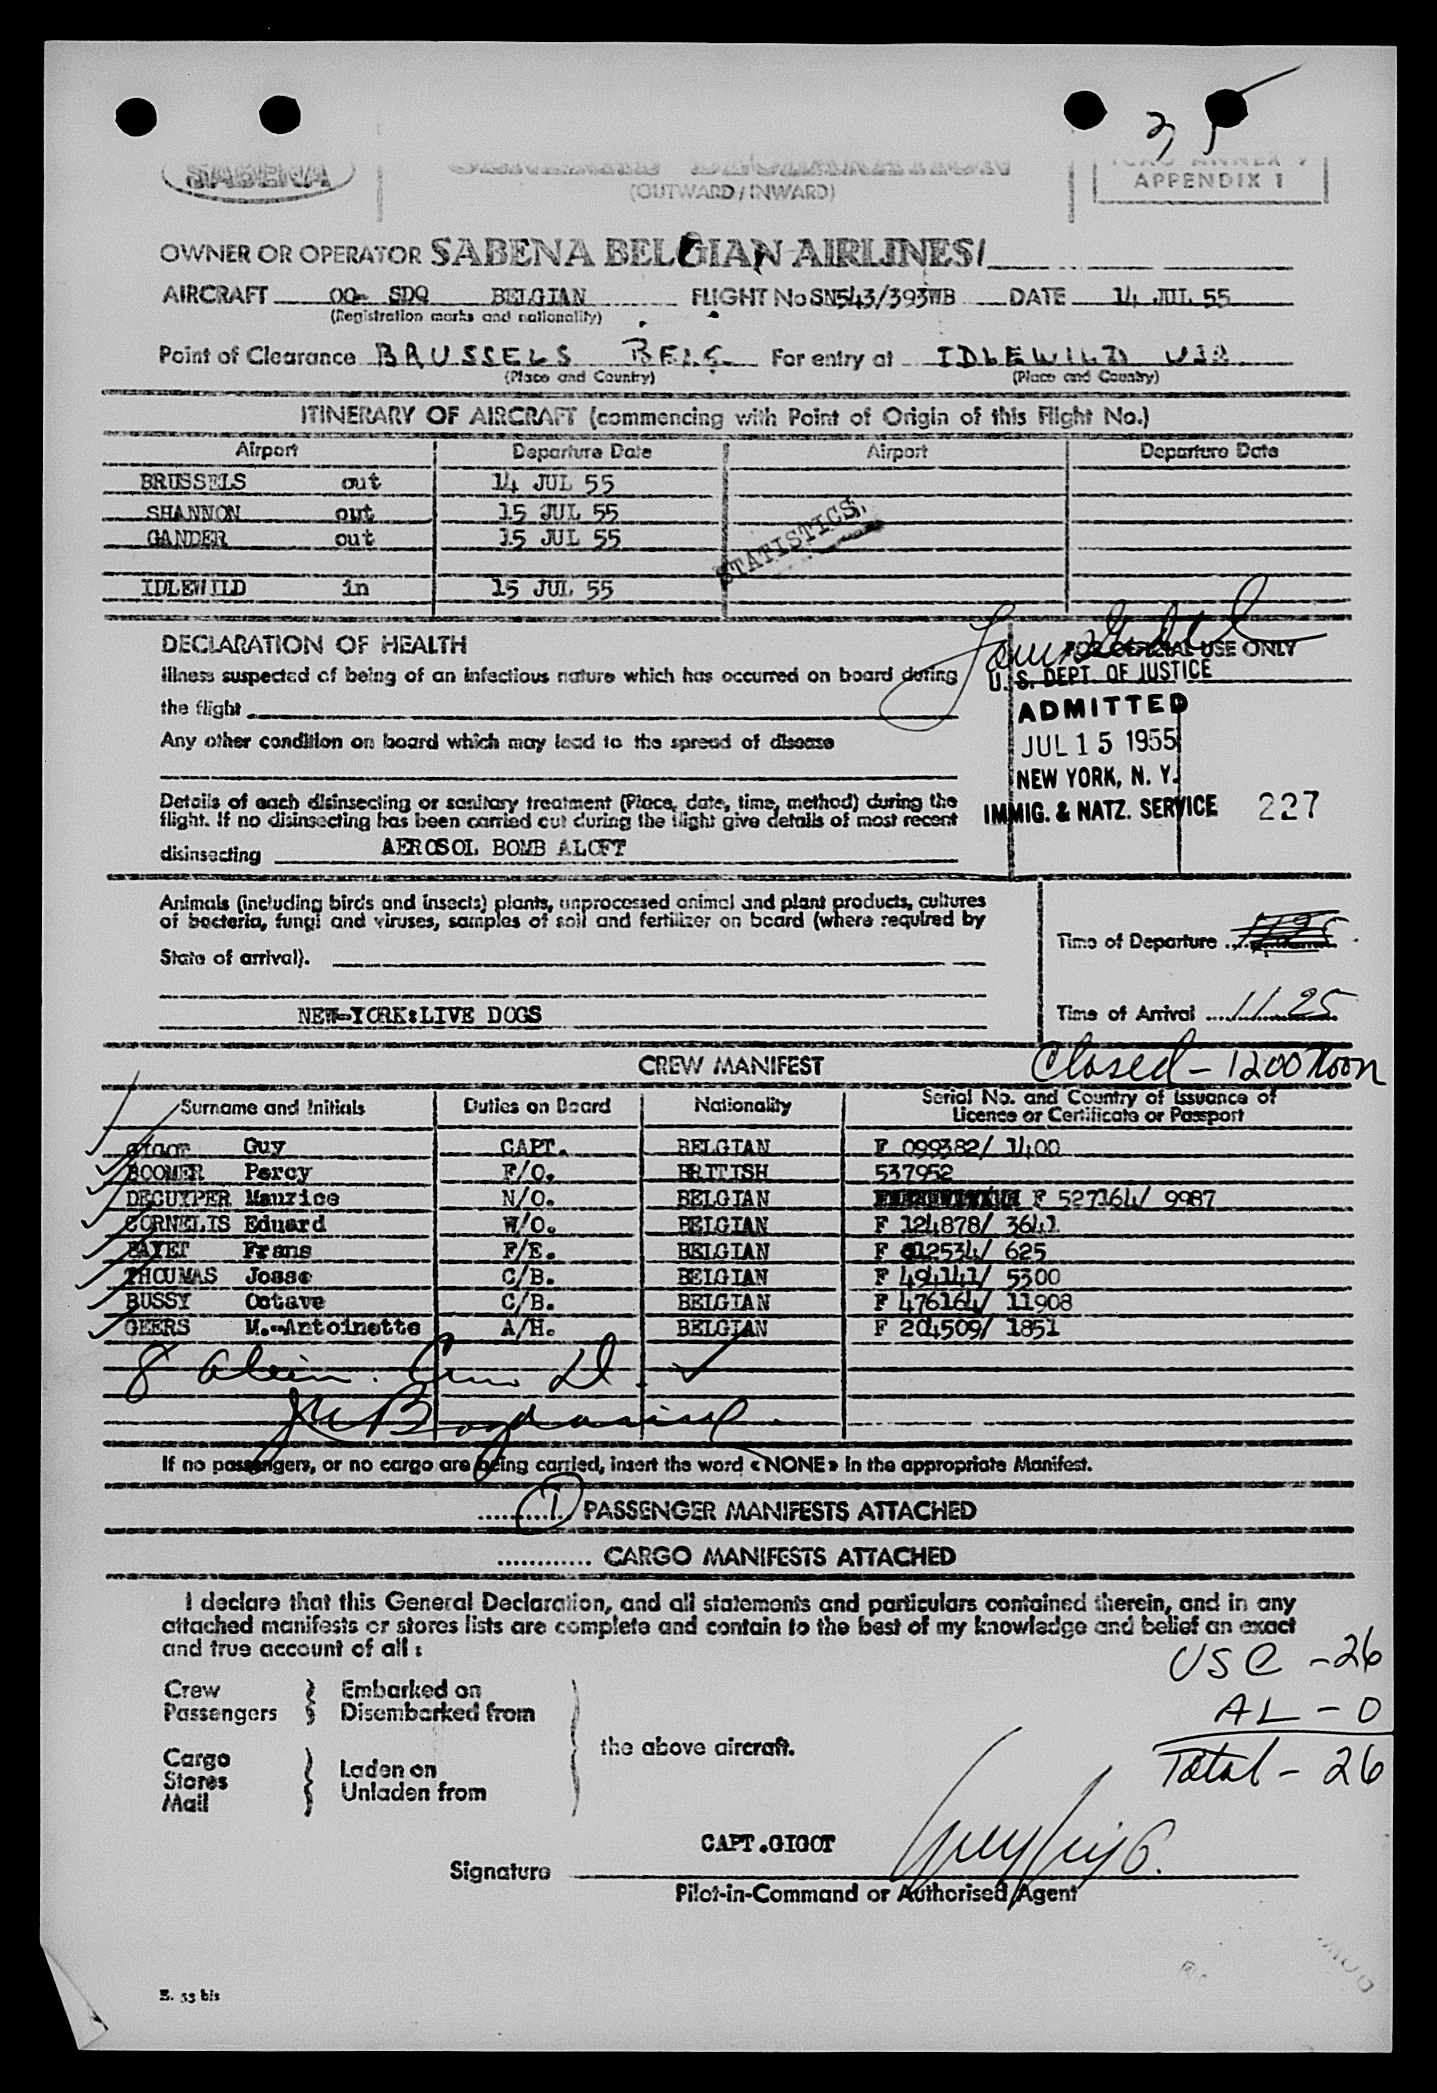 3 5
SABENA
GENERAL DECLARATION
(OUTWARD / INWARD)
ICAO ANNEX 9
APPENDIX 1
OWNER OR OPERATOR SABENA BELGIAN AIRLINES/
AIRCRAFT OO- SDQ BELGIAN FLIGHT No SN543/393WB DATE 14 JUL 55
(Registration marks and nationality)
Point of Clearance BRUSSELS BELG. For entry at IDLEWILD USA
(Place and Country) (Place and Country)
ITINERARY OF AIRCRAFT (commencing with Point of Origin of this Flight No.)
Airport Departure Date Airport Departure Date
BRUSSELS out 14 JUL 55
SHANNON out 15 JUL 55
GANDER out 15 JUL 55
STATISTICS
IDLEWILD in 15 JUL 55
DECLARATION OF HEALTH
FOR OFFICIAL USE ONLY
Illness suspected of being of an infectious nature which has occurred on board during
the flight
U. S. DEPT. OF JUSTICE
ADMITTED
JUL 15 1955
NEW YORK, N. Y.
IMMIG. & NATZ. SERVICE 227
Any other condition on board which may lead to the spread of disease
Details of each disinsecting or sanitary treatment (Place, date, time, method) during the
flight. If no disinsecting has been carried out during the flight give details of most recent
disinsecting AEROSOL BOMB ALOFT
Animals (including birds and insects) plants, unprocessed animal and plant products, cultures
of bacteria, fungi and viruses, samples of soil and fertilizer on board (where required by
State of arrival).
Time of Departure
NEW-YORK:LIVE DOGS
Time of Arrival 11 25
Closed - 1200 Noon
CREW MANIFEST
Surname and Initials Duties on Board Nationality Serial No. and Country of Issuance of
Licence or Certificate or Passport
GIGOT Guy CAPT. BELGIAN F 099382/ 1400
BOOMER Percy F/O. BRITISH 537952
DECUYPER Maurice N/O. BELGIAN F 527364/ 9987
CORNELIS Eduard W/O. BELGIAN F 124878/ 3641
PAYET Frans F/E. BELGIAN F 012534/ 625
THOUMAS Josse C/B. BELGIAN F 494141/ 5300
BUSSY Octave C/B. BELGIAN F 476164/ 11908
GEERS M.-Antoinette A/H. BELGIAN F 204509/ 1851
8 alien
If no passengers, or no cargo are being carried, insert the word «NONE» in the appropriate Manifest.
1 PASSENGER MANIFESTS ATTACHED
............ CARGO MANIFESTS ATTACHED
I declare that this General Declaration, and all statements and particulars contained therein, and in any
attached manifests or stores lists are complete and contain to the best of my knowledge and belief an exact
and true account of all :
USC - 26
AL - 0
Total - 26
Crew Embarked on
Passengers Disembarked from
the above aircraft.
Cargo
Stores Laden on
Mail Unladen from
CAPT.GIGOT
Signature
Pilot-in-Command or Authorised Agent
E. 53 bis